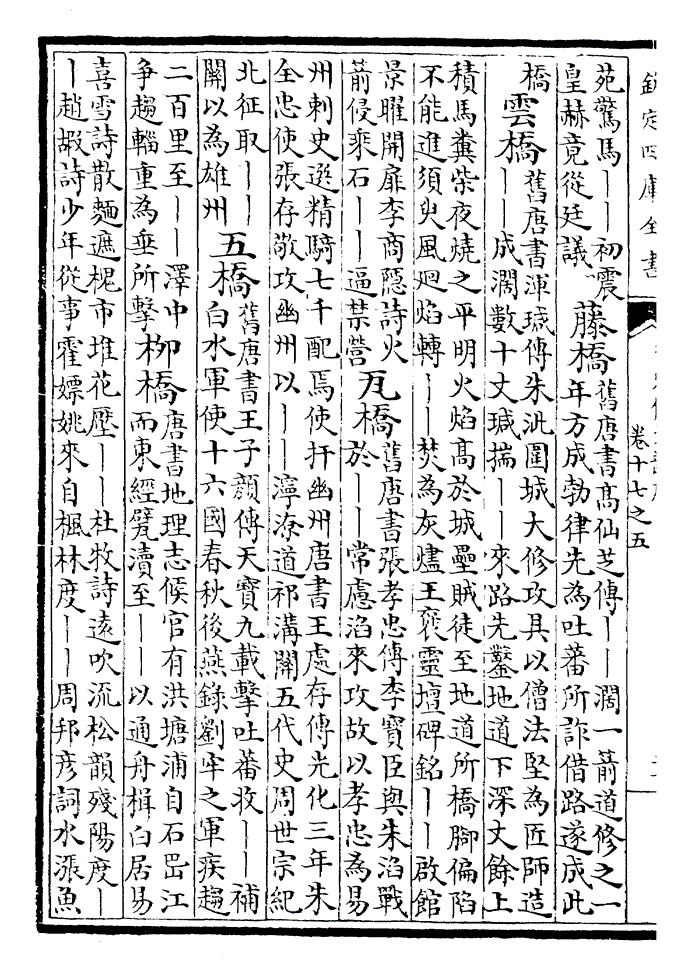 欽定四庫全書
卷十七之五
苑驚馬——初震
皇赫竟從廷議
藤橋
舊唐書高仙芝傳——濶一箭道修之一
年方成勃律先為吐蕃所詐借路遂成此
橋
雲橋
舊唐書渾瑊傳朱泚圍城大修攻具以僧法堅為匠師造
——成濶數十丈瑊揣——來路先鑿地道下深丈餘上
積馬糞柴夜燒之平明火焰髙於城壘賊徒至地道所橋腳偏陷
不能進須臾風迴焰轉——焚為灰燼王襃靈壇碑銘——啟館
景曜開扉李商隱詩火
箭侵乘石——逼禁營
瓦橋
舊唐書張孝忠傳李寶臣與朱滔戰
於——常慮滔來攻故以孝忠為易
州刺史選精騎七千配焉使扞幽州唐書王處存傳光化三年朱
全忠使張存敬攻幽州以——濘潦道祁溝關五代史周世宗紀
北征取——
關以為雄州
五橋
舊唐書王子顏傳天寶九載擊吐蕃收——補
白水軍使十六國春秋後燕錄劉牢之軍疾趨
二百里至——澤中
争趨輜重為垂所擊
柳橋
唐書地理志候官有洪塘浦自石岊江
而東經甓瀆至——以通舟楫白居易
喜雪詩散麵遮槐市堆花壓——杜牧詩遠吹流松韻殘陽度—
—趙嘏詩少年從事霍嫖姚來自楓林度——周邦彥詞水漲魚